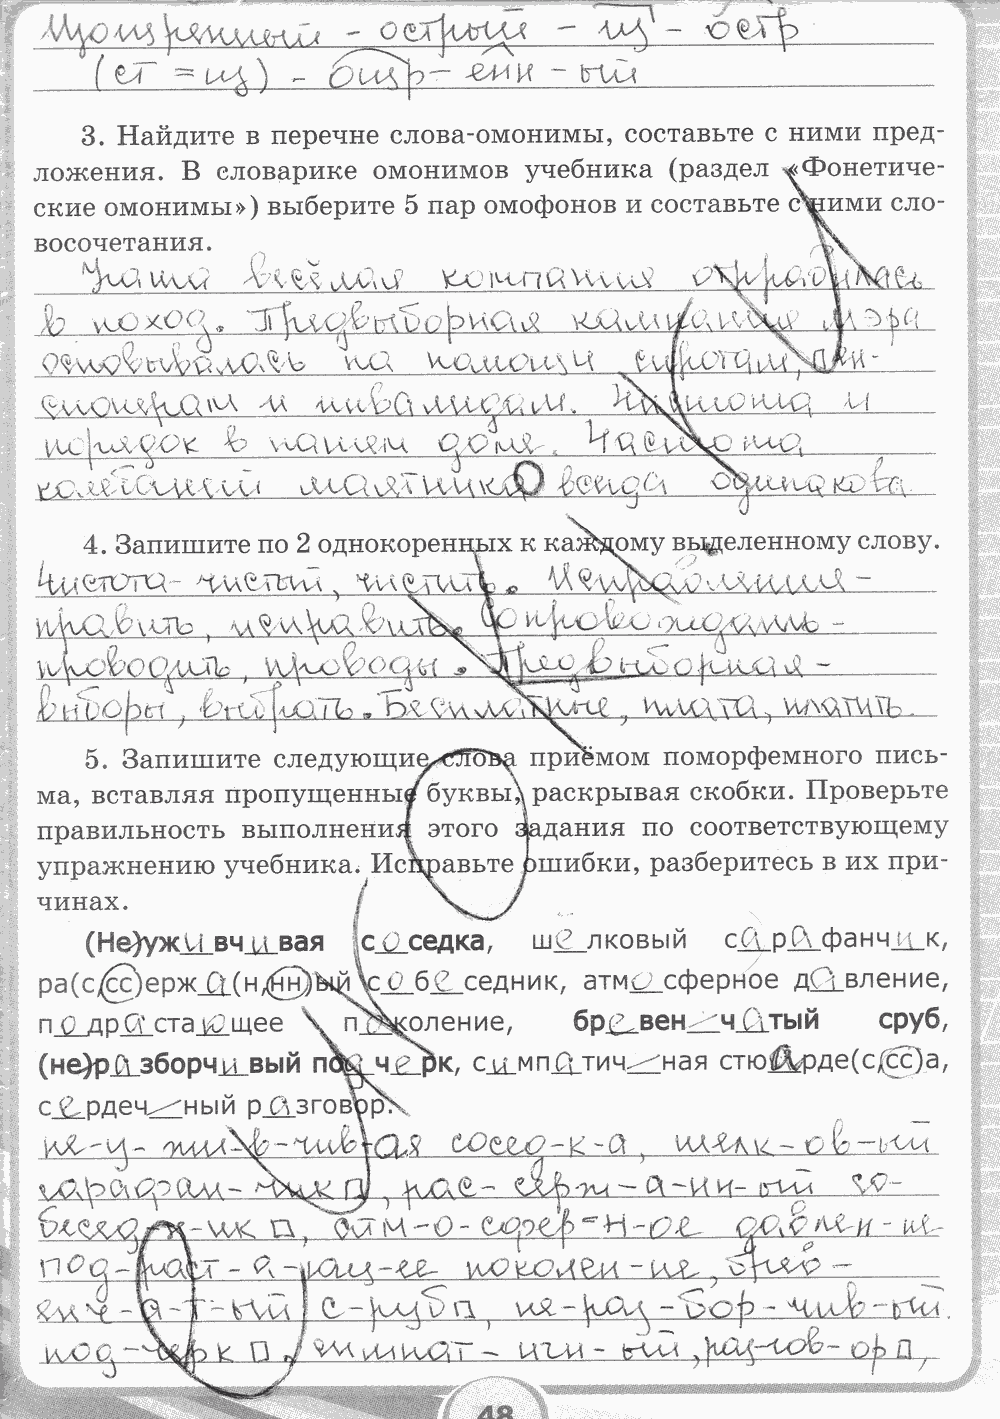 Изощренный - острый - щ - остр
(ст = щ) - ощр - енн - ый
3. Найдите в перечне слова-омонимы, составьте с ними пред-
ложения. В словарике омонимов учебника (раздел «Фонетиче-
ские омонимы») выберите 5 пар омофонов и составьте с ними сло-
восочетания.
Наша весёлая компания отправилась
в поход. Предвыборная кампания мэра
основывалась на помощи сиротам, пен-
сионерам и инвалидам. Чистота и
порядок в нашем доме. Частота
колебаний маятника всегда одинакова
4. Запишите по 2 однокоренных к каждому выделенному слову.
Чистота - чистый, чистить. Исправления -
править, исправить. Сопровождать -
проводить, проводы. Предвыборная -
выборы, выбрать. Бесплатные, плата, платить.
5. Запишите следующие слова приёмом поморфемного пись-
ма, вставляя пропущенные буквы, раскрывая скобки. Проверьте
правильность выполнения этого задания по соответствующему
упражнению учебника. Исправьте ошибки, разберитесь в их при-
чинах.
(Не)уживчивая соседка, шёлковый сарафанчик,
ра(с,сс)ержа(н,нн)ый собеседник, атмосферное давление,
подрастающее поколение, бревенчатый сруб,
(не)разборчивый подчерк, симпатичная стюарде(с,сс)а,
сердечный разговор.
не-у-жи-в-чив-ая сосед-к-а, шелк-ов-ый
сарафан-чик, рас-серж-а-нн-ый со-
бесед-н-ик, атм-о-сфер-н-ое давлен-ие
под-раст-а-ющ-ее поколен-ие, брев-
енч-а-т-ый с-руб, не-раз-бор-чив-ый
под-черк, симпат-ичн-ый, раз-гов-ор,
48